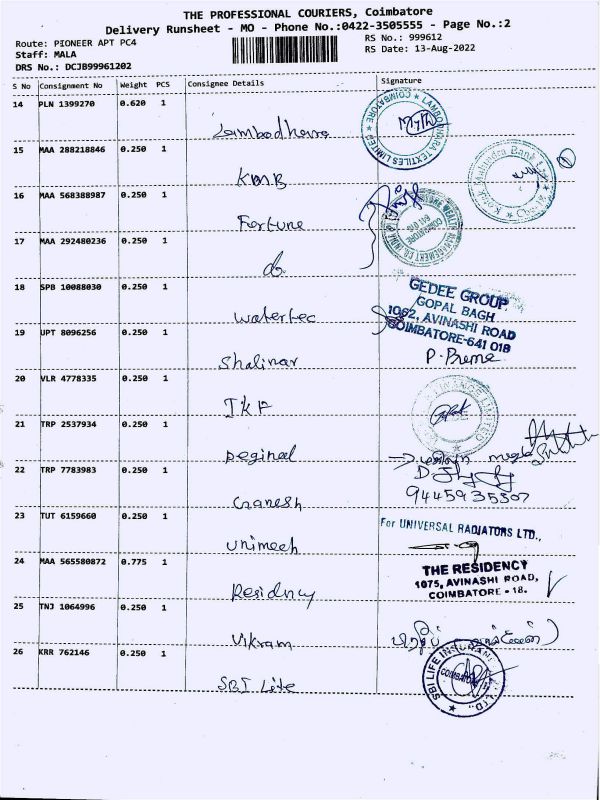 THE PROFESSIONAL COURIERS, Coimbatore
Delivery Runsheet - MO - Phone No.:0422-3505555 - Page No.:2
Route: PIONEER APT PC4
RS No.: 999612
Staff: MALA
RS Date: 13-Aug-2022
DRS No.: DCJB99961202
S No Consignment No Weight PCS Consignee Details Signature
14 PLN 1399270 0.620 1
Lambodhara
COIMBATORE ★ LAMBODHARA TEXTILES LIMITED ★
15 MAA 288218846 0.250 1
KMB
Kotak Mahindra Bank Ltd
16 MAA 568388987 0.250 1
Fortune
17 MAA 292480236 0.250 1
do
18 SPB 10088030 0.250 1
watertec
GEDEE GROUP
GOPAL BAGH
1062, AVINASHI ROAD
COIMBATORE-641 018
19 UPT 8096256 0.250 1
Shalinar
P. Preme
20 VLR 4778335 0.250 1
IKF
21 TRP 2537934 0.250 1
Reginal
22 TRP 7783983 0.250 1
Ganesh
9445935507
23 TUT 6159660 0.250 1
unimech
For UNIVERSAL RADIATORS LTD.,
24 MAA 565580872 0.775 1
Residncy
THE RESIDENCY
1075, AVINASHI ROAD,
COIMBATORE - 18.
25 TNJ 1064996 0.250 1
Vikram
26 KRR 762146 0.250 1
SBI Life